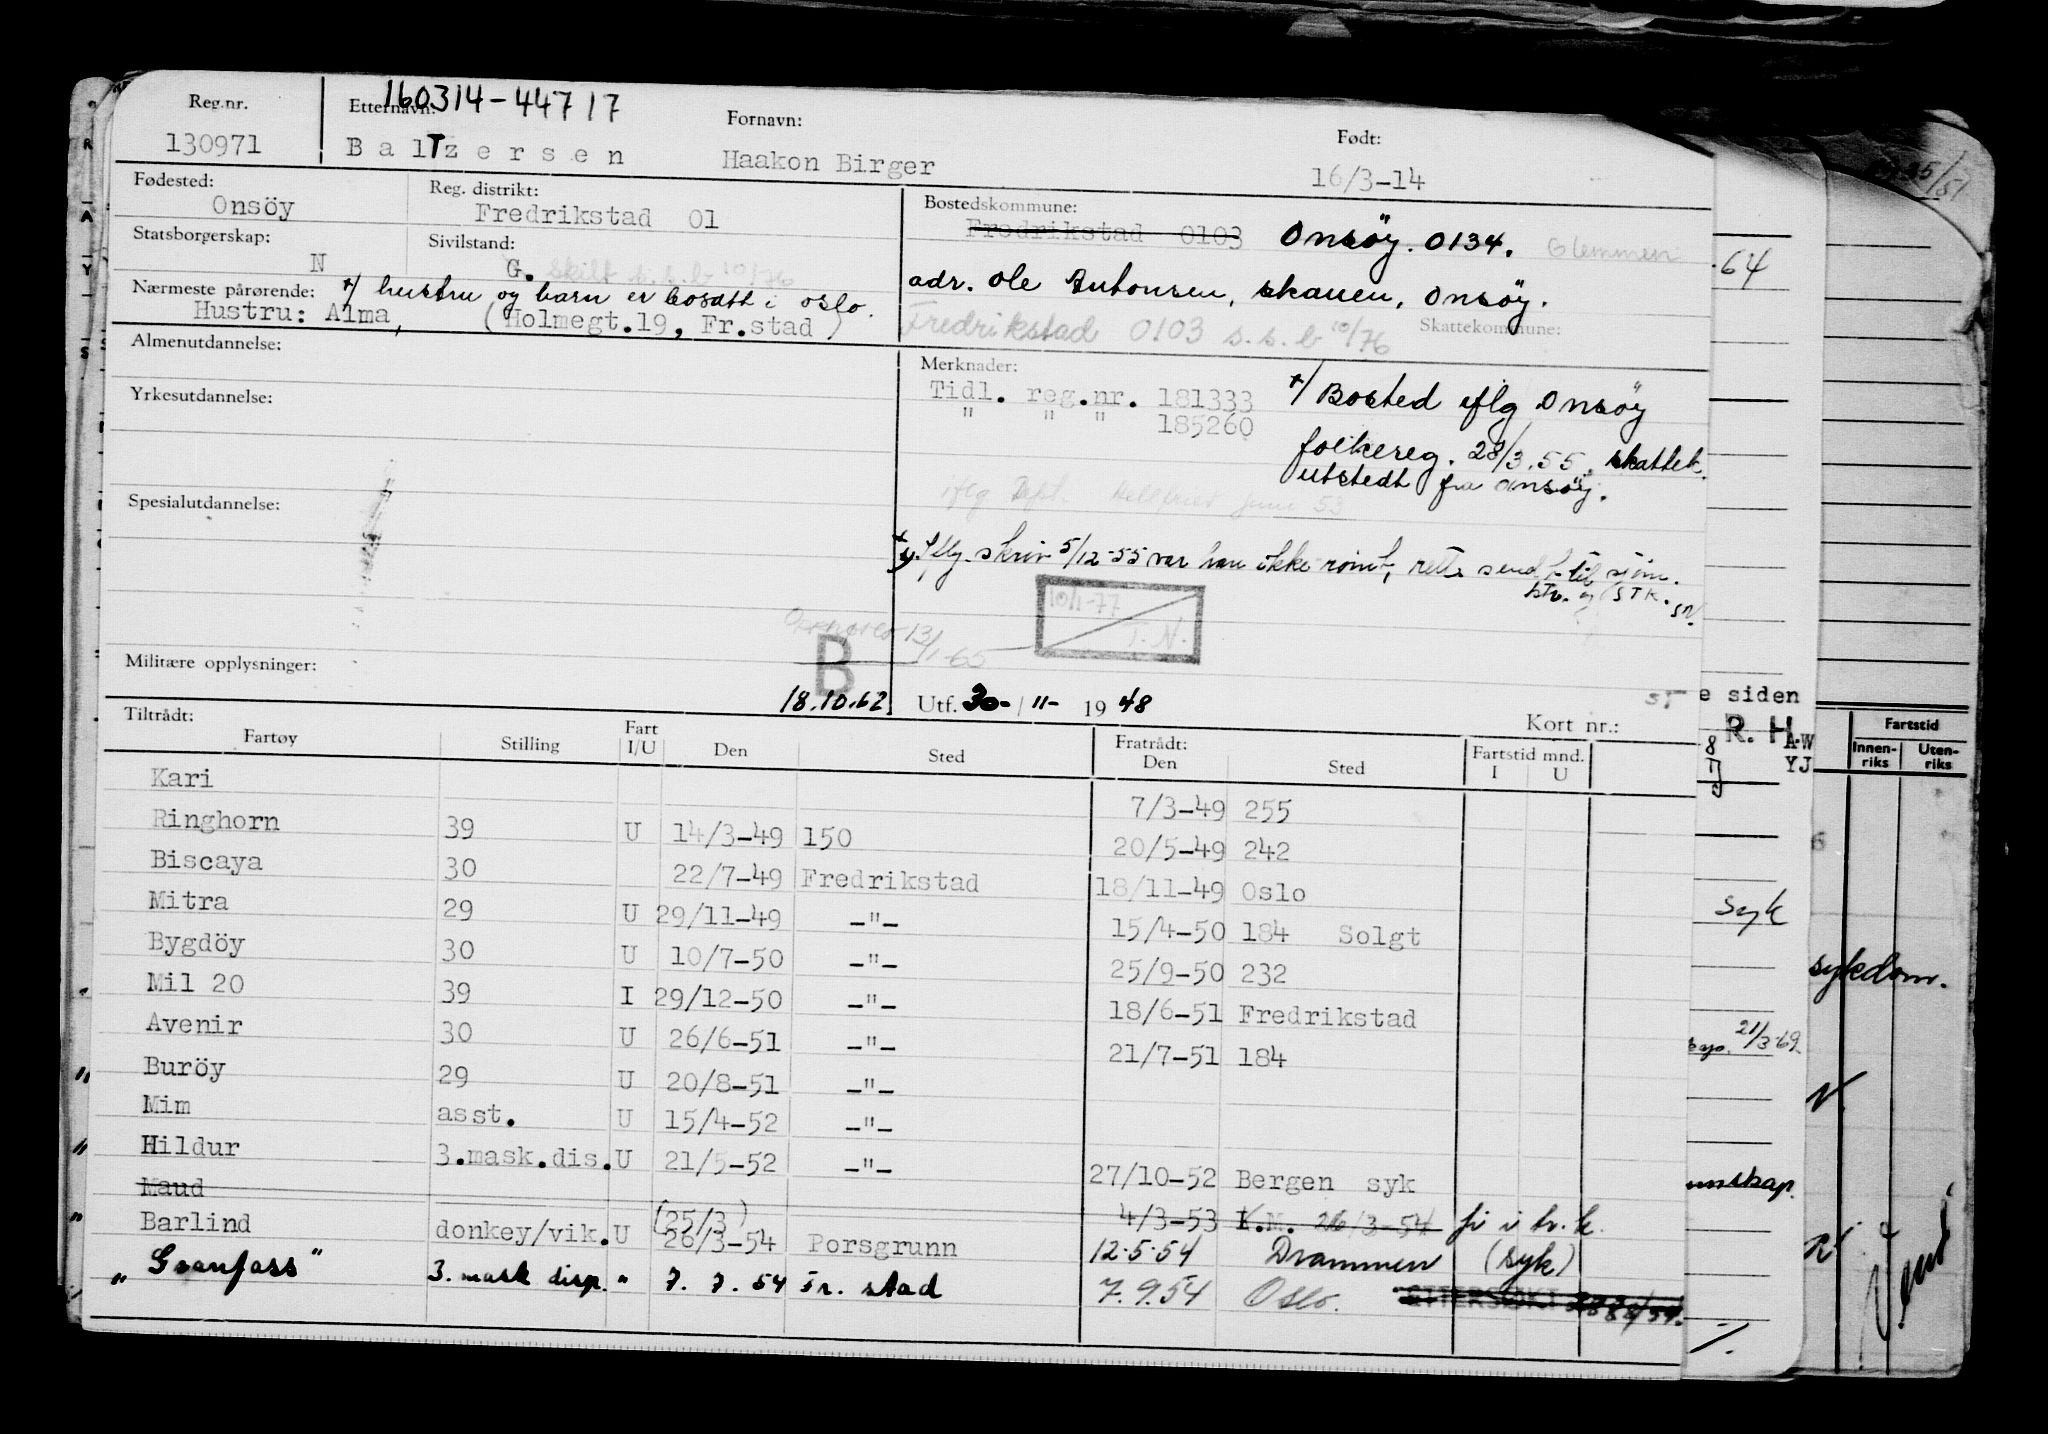 Reg.nr. Etternavn: 160314-44717 Fornavn: Født:
130971 BalTzersen Haakon Birger 16/3-14
Fødested: Reg. distrikt: Bostedskommune:
Onsöy Fredrikstad 01 Fredrikstad 0103 Onsöy. 0134. Glemmen
Statsborgerskap: Sivilstand:
N G. skilt s.s.b 10/76
adr. Ole Antonsen, skauen, Onsöy.
Nærmeste pårørende: x/ hustru og barn er bosatt i oslo.
Hustru: Alma, (Holmegt.19, Fr.stad)
Fredrikstad 0103 s.s.b 10/76 Skattekommune:
Almenutdannelse: Merknader:
Tidl. reg.nr. 181333 x/ Bosted iflg Onsöy
" " " 185260
Yrkesutdannelse:
folkereg. 28/3.55. skattek.
utstedt fra Onsöy.
iflg Juni 53
Spesialutdannelse:
Iflg. skriv 5/12-55 var han ikke send til sjöm.
STK.
10/1-77
T.N.
13/1-65
B
Militære opplysninger:
18.10.62 Utf. 30-/11-1948
Kort nr.:
Tiltrådt: Fratrådt:
Fartøy Stilling Fart I/U Den Sted Den Sted Fartstid mnd. I U
Kari 7/3-49 255
Ringhorn 39 U 14/3-49 150 20/5-49 242
Biscaya 30 22/7-49 Fredrikstad 18/11-49 Oslo
Mitra 29 U 29/11-49 -"- 15/4-50 184 Solgt
Bygdöy 30 U 10/7-50 -"- 25/9-50 232
Mil 20 39 I 29/12-50 -"- 18/6-51 Fredrikstad
Avenir 30 U 26/6-51 -"- 21/7-51 184
Buröy 29 U 20/8-51 -"-
Mim asst. U 15/4-52 -"-
Hildur 3.mask.dis. U 21/5-52 -"- 27/10-52 Bergen syk
Maud 4/3-53 K.M. 26/3-54
Barlind donkey/vik. U (25/3) 26/3-54 Porsgrunn 12.5.54 Drammen (syk)
" Granfoss" 3. mask disp. " 7. 7. 54 Fr. stad 7.9.54 Oslo.
64
e siden
R. H.
A-W
YJ
Fartstid
Innenriks Utenriks
syk
sykdom.
21/3-69